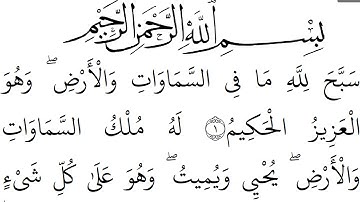 بِسْمِ اللَّهِ الرَّحْمَٰنِ الرَّحِيمِ
سَبَّحَ لِلَّهِ مَا فِى السَّمَاوَاتِ وَالْأَرْضِ ۖ وَهُوَ
الْعَزِيزُ الْحَكِيمُ ۝١ لَهُ مُلْكُ السَّمَاوَاتِ
وَالْأَرْضِ ۖ يُحْيِي وَيُمِيتُ ۖ وَهُوَ عَلَىٰ كُلِّ شَىْءٍ